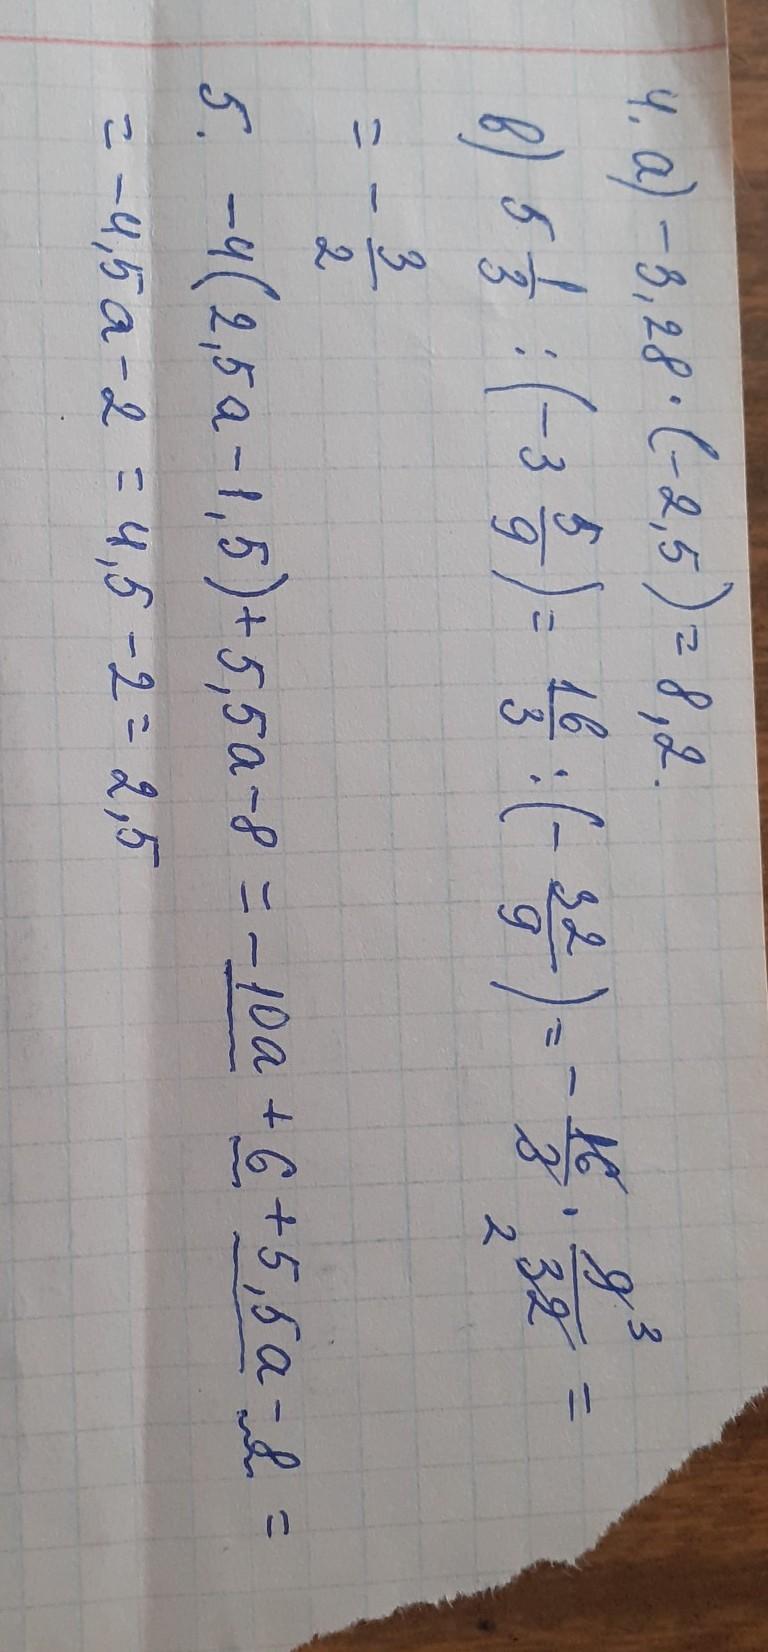 4. а) -3,28 · (-2,5) = 8,2.
в) 5 1/3 : (-3 5/9) = 16/3 : (-32/9) = - 16/3 · 9 3/2 32 =
= - 3/2
5. -4(2,5а - 1,5) + 5,5а - 8 = -10а + 6 + 5,5а - 8 =
= -4,5а - 2 = 4,5 - 2 = 2,5